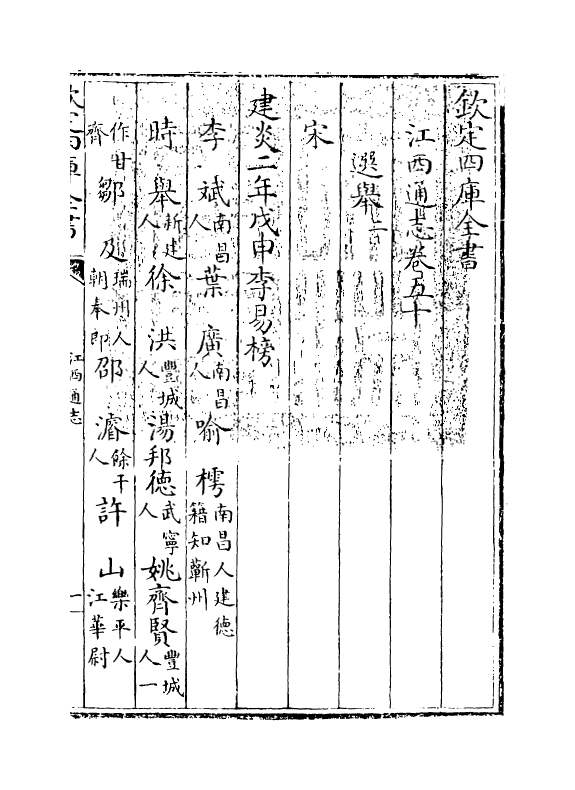 欽定四庫全書
江西通志卷五十
選舉二
宋
建炎二年戊申李易榜
李斌南昌人葉廣南昌人喻樗南昌人建德籍知蘄州
時舉新建人徐洪豐城人湯邦德武寧人姚齊賢豐城人一
作甘齊鄒及瑞州人朝奉郎邵濬餘干人許山樂平人江華尉
欽定四庫全書
江西通志
一